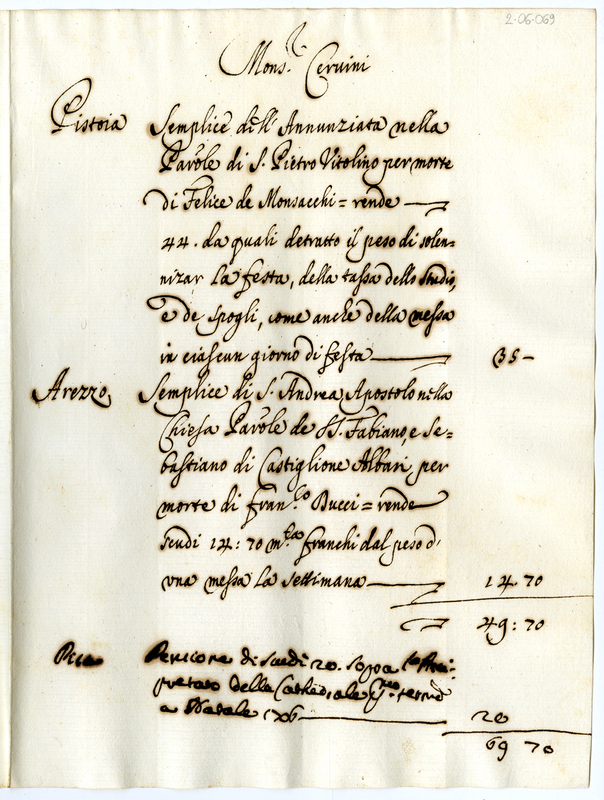 2-06-069
Mons.r Cervini
Pistoia Semplice dell' Annunziata nella
Par.le di S. Pietro Vitolino per morte
di Felice de Monsacchi = rende
44. da quali detratto il peso di solen=
nizar la festa, della tassa dello studio,
e de spogli, come anche della messa
in ciascun giorno di festa 35 -
Arezzo, Semplice di S. Andrea Apostolo nella
Chiesa Par.le de SS. Fabiano, e Se=
bastiano di Castiglione Albari per
morte di Fran.co Bucci = rende
scudi 14:70 m.ta franchi dal peso d'
una messa la settimana 14.70
49:70
Pensione di scudi 20. sopra
della Cathedrale termd
a Natale 1706 20
69 70